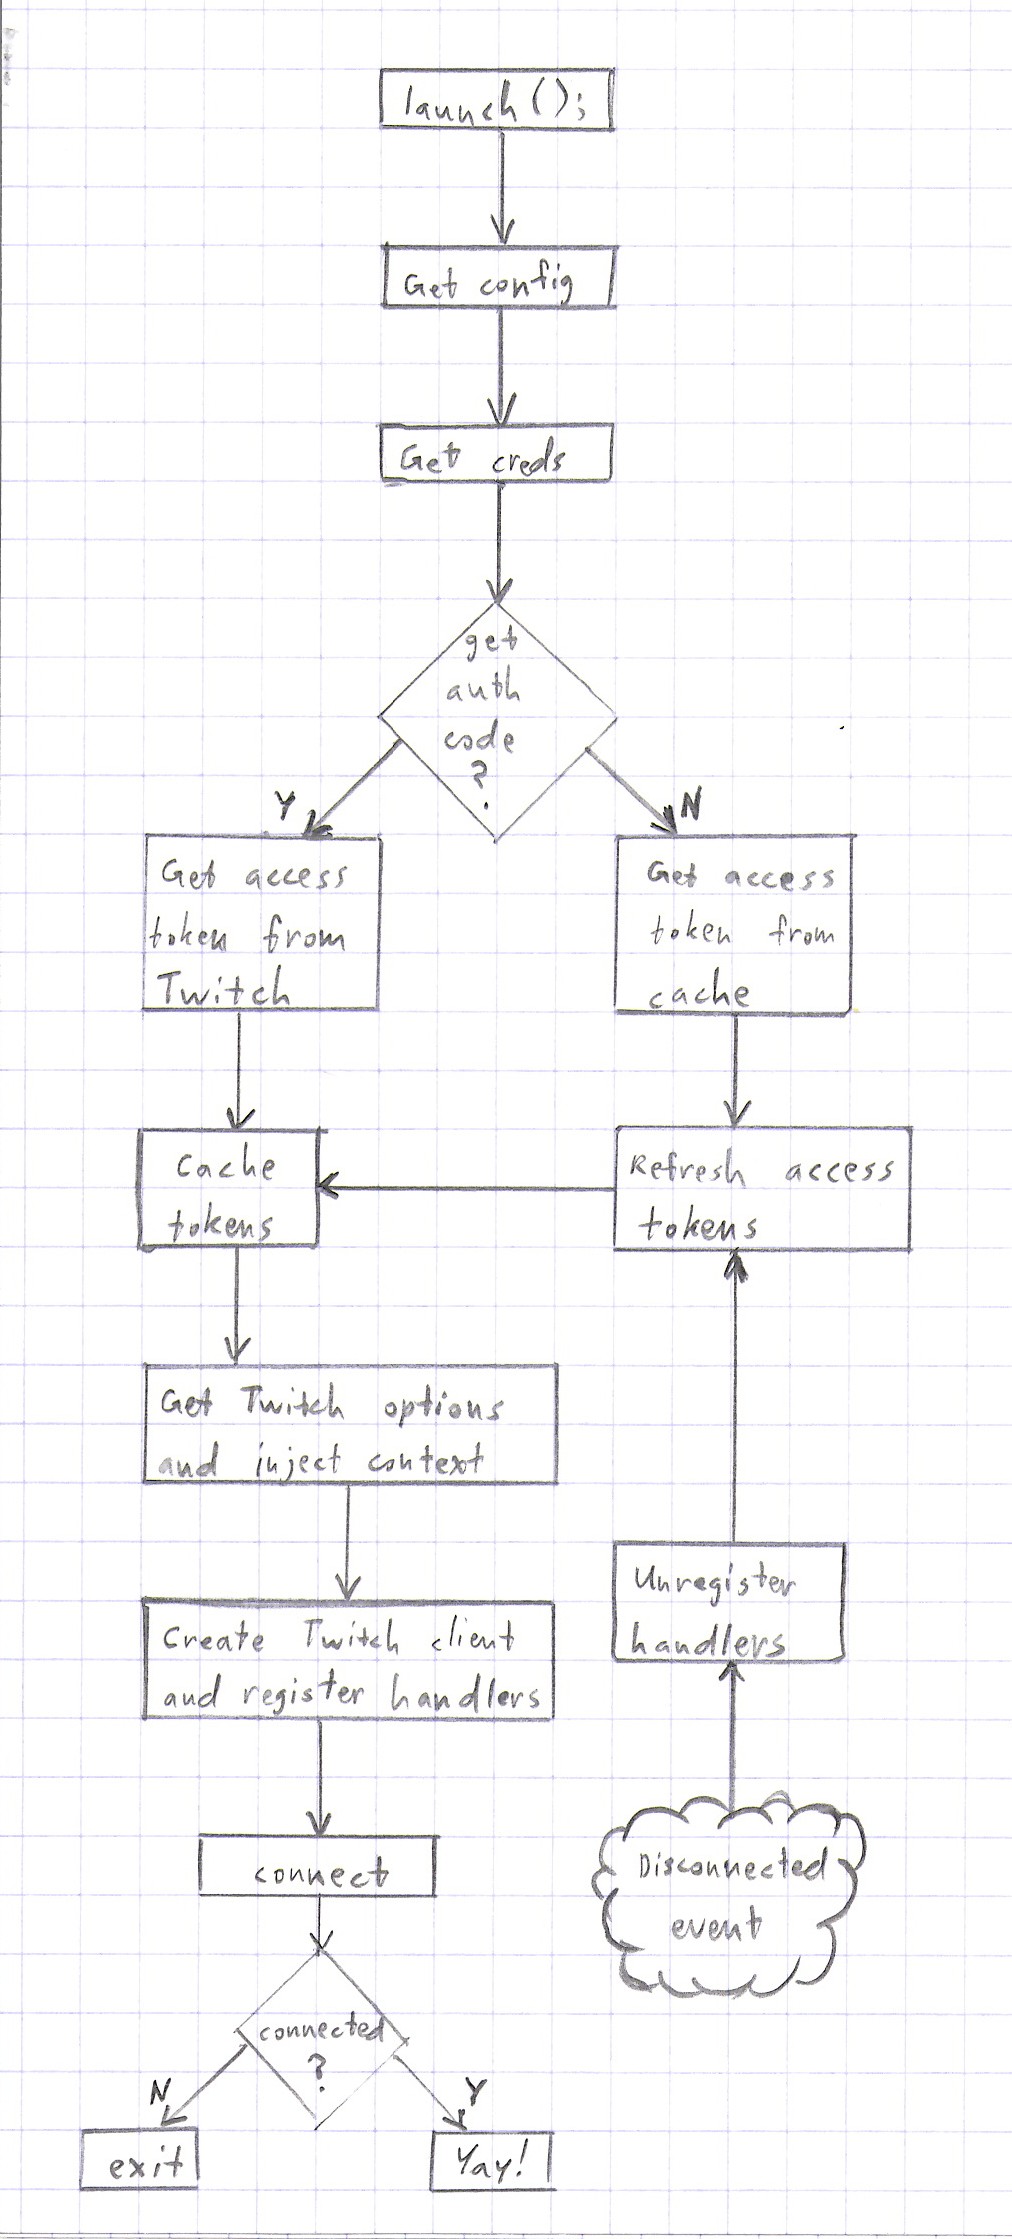 launch();
Get config
Get creds
get
auth
code
?
Y
N
Get access
token from
Twitch
Get access
token from
cache
Cache
tokens
Refresh access
tokens
Get Twitch options
and inject context
Unregister
handlers
Create Twitch client
and register handlers
connect
Disconnected
event
connected
?
N
Y
exit
Yay!